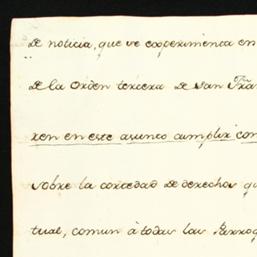 de noticia, que ve experimenta en
de la Orden tercera de San Fran
ren en este asunto cumplir con
sobre la cortedad de derechos qu
tual, comun à todas las Parroq